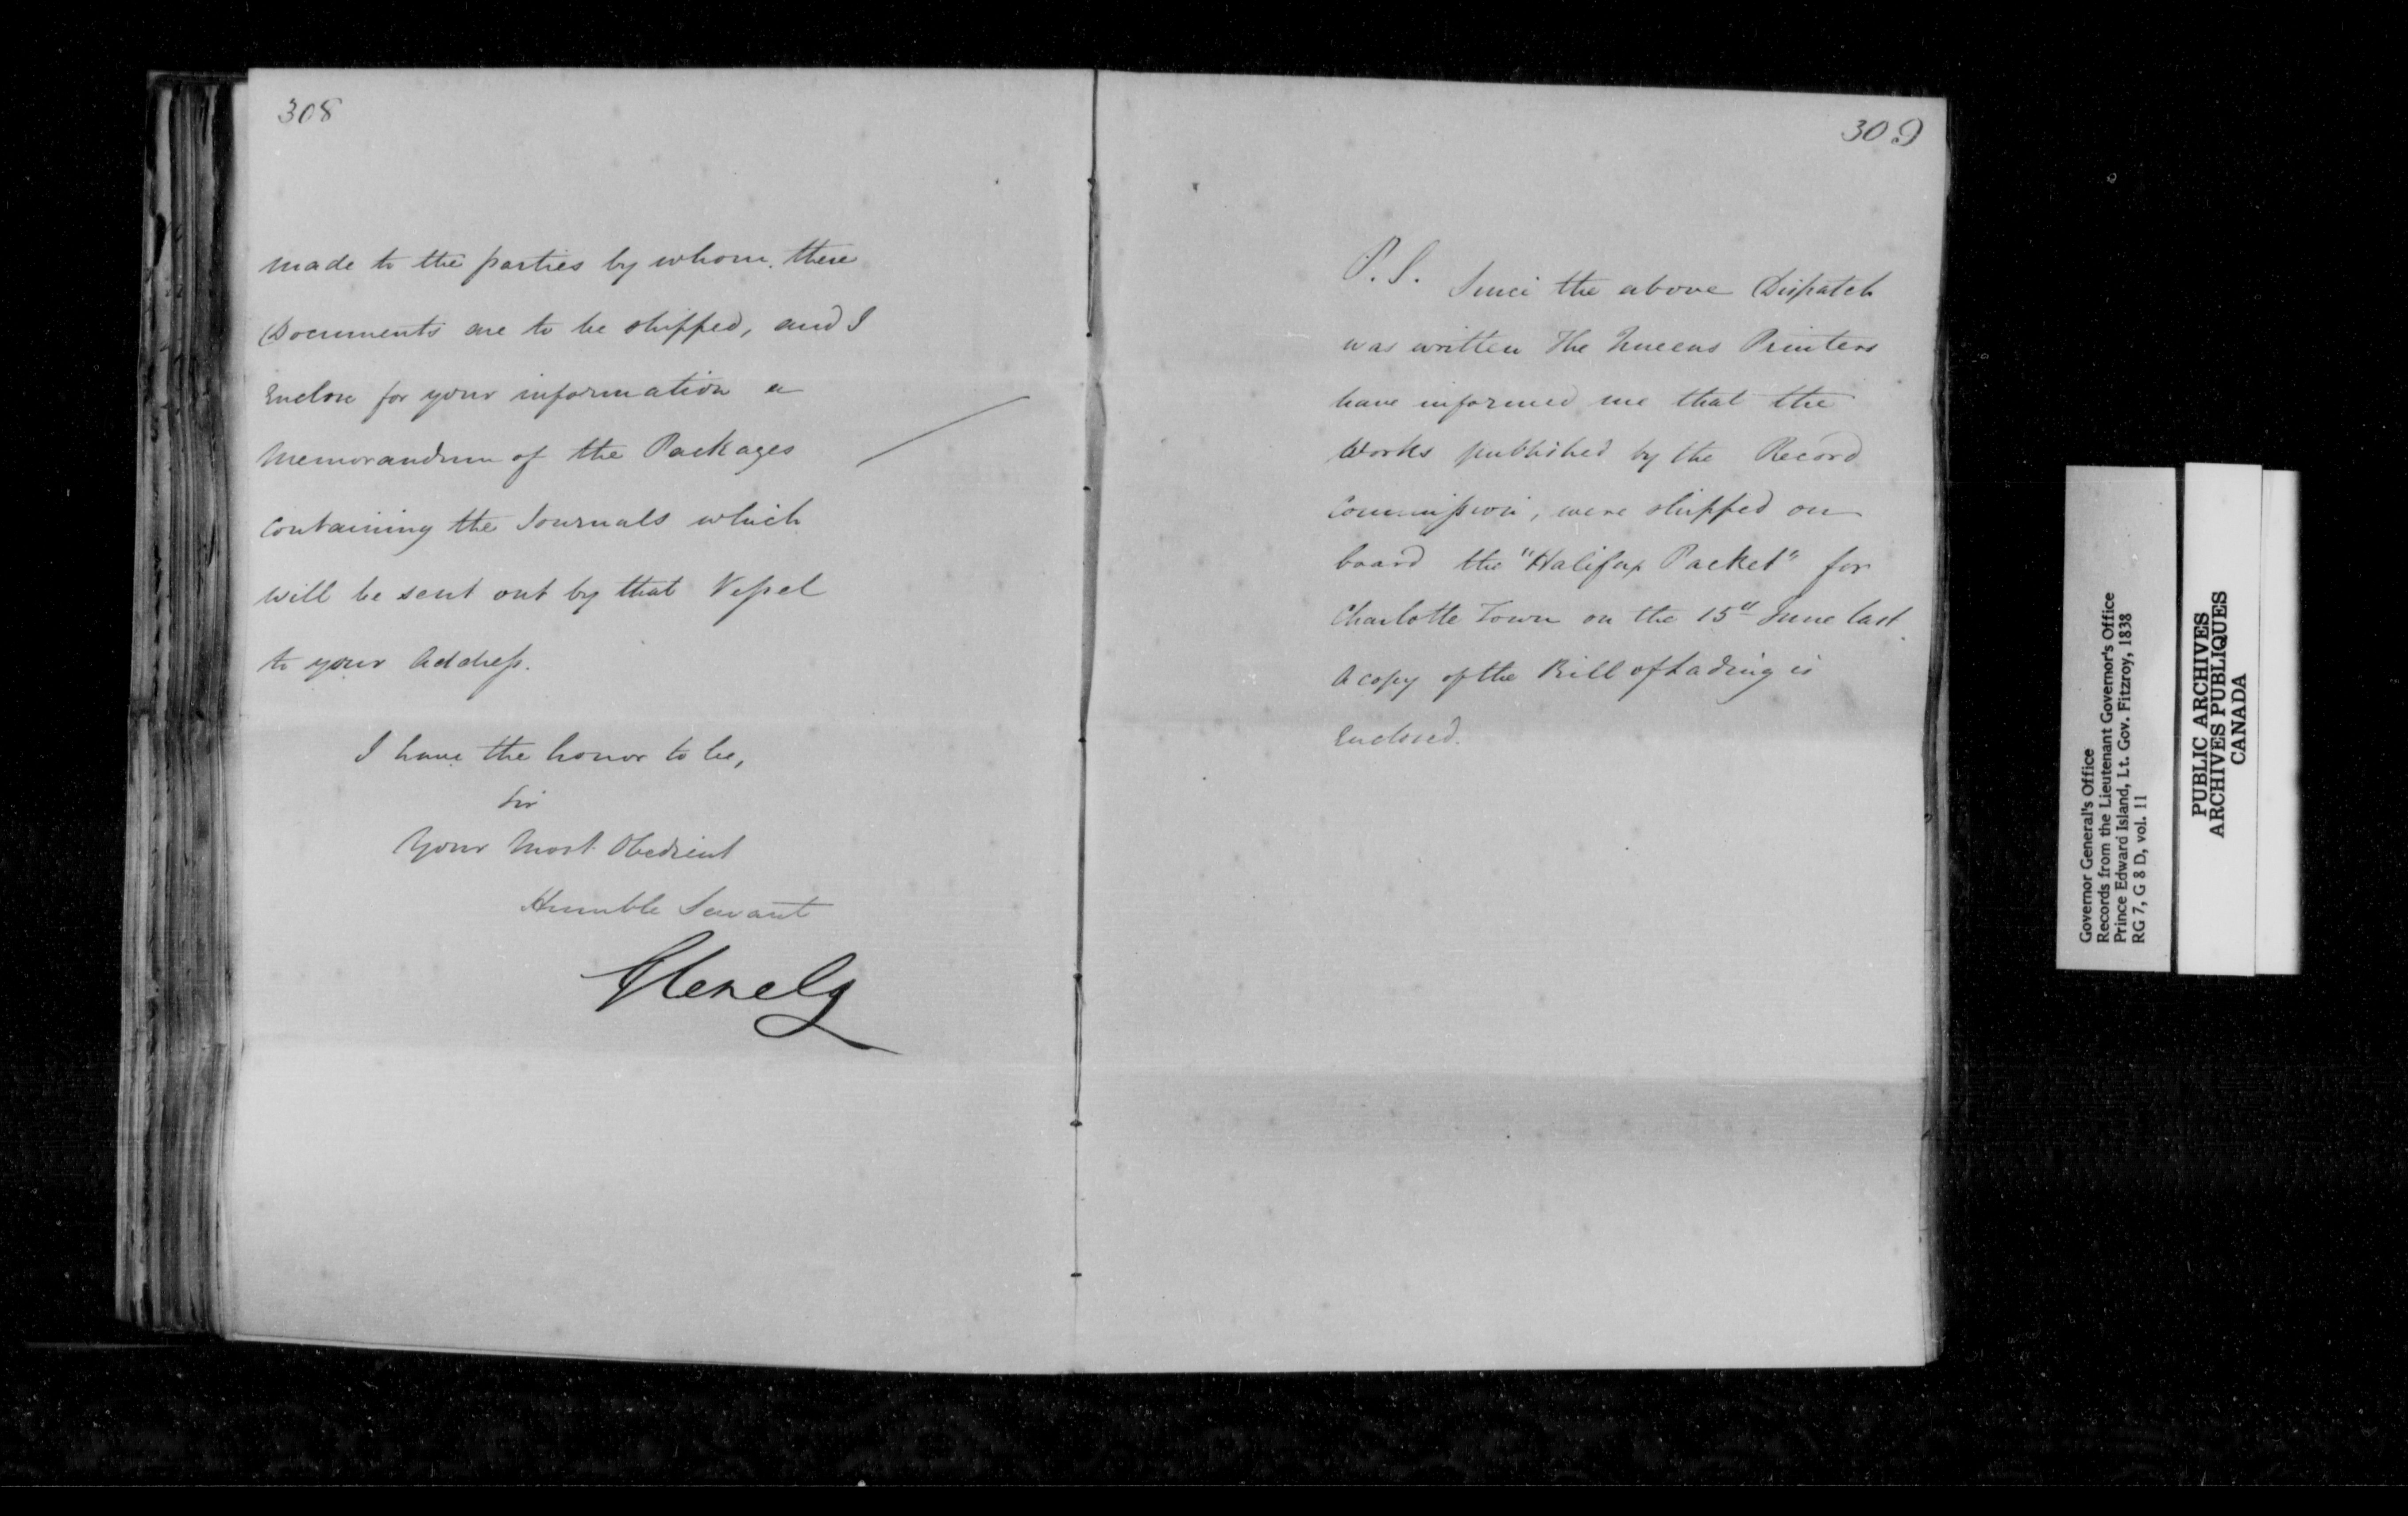 308
made to the parties by whom these
Documents are to be shipped, and I
Enclose for your information a
Memorandum of the Packages
Containing the Journals which
will be sent out by that Vessel
to your Address.
I have the honor to be,
Sir
Your Most Obedient
Humble Servant
Glenelg
309
P.S. Since the above Dispatch
was written The Queens Printers
have informed me that the
Works published by the Record
Commission, were shipped on
board the "Halifax Packet" for
Charlotte Town on the 15" June last.
A copy of the Bill of Lading is
Enclosed.
Governor General's Office
Records from the Lieutenant Governor's Office
Prince Edward Island, Lt. Gov. Fitzroy, 1838
RG 7, G 8 D, vol. 11
PUBLIC ARCHIVES
ARCHIVES PUBLIQUES
CANADA